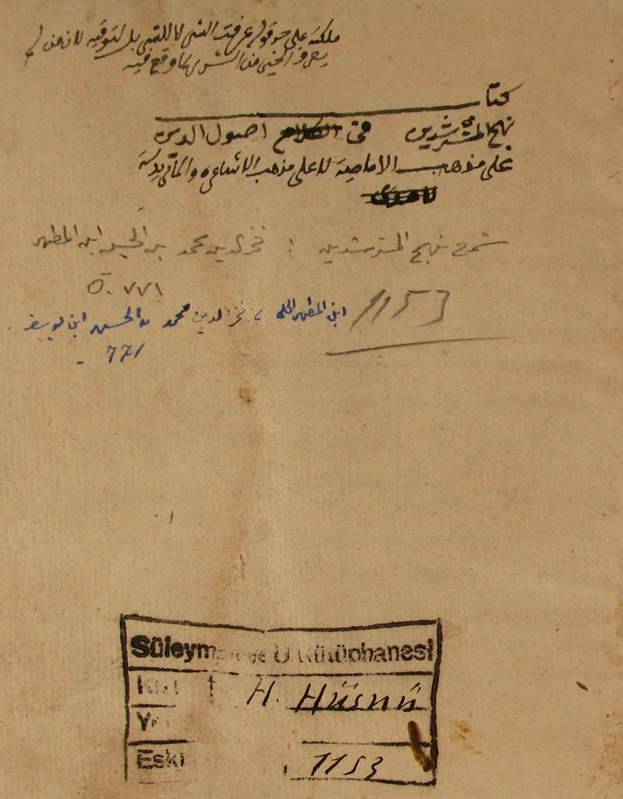 ملكته على حد قولهم عرفت الشر لا للشر بل لتوقيه لان من لم
يعرف الخير من الشر ربما وقع فيه
كتاب
نهج المسترشدين فى الكلام اصول الدين
على مذهب الامامية لا على مذهب الاشاعره والماتريدية
شرح نهج المسترشدين : فخر الدين محمد بن الحسن ابن المطهر
٧٧١
ابن المطهر الحلى ، فخر الدين محمد بن الحسن ابن يوسف
1153
771 -
Süleymaniye U. Kütüphanesi
H. Hüsnü
Eski 1153